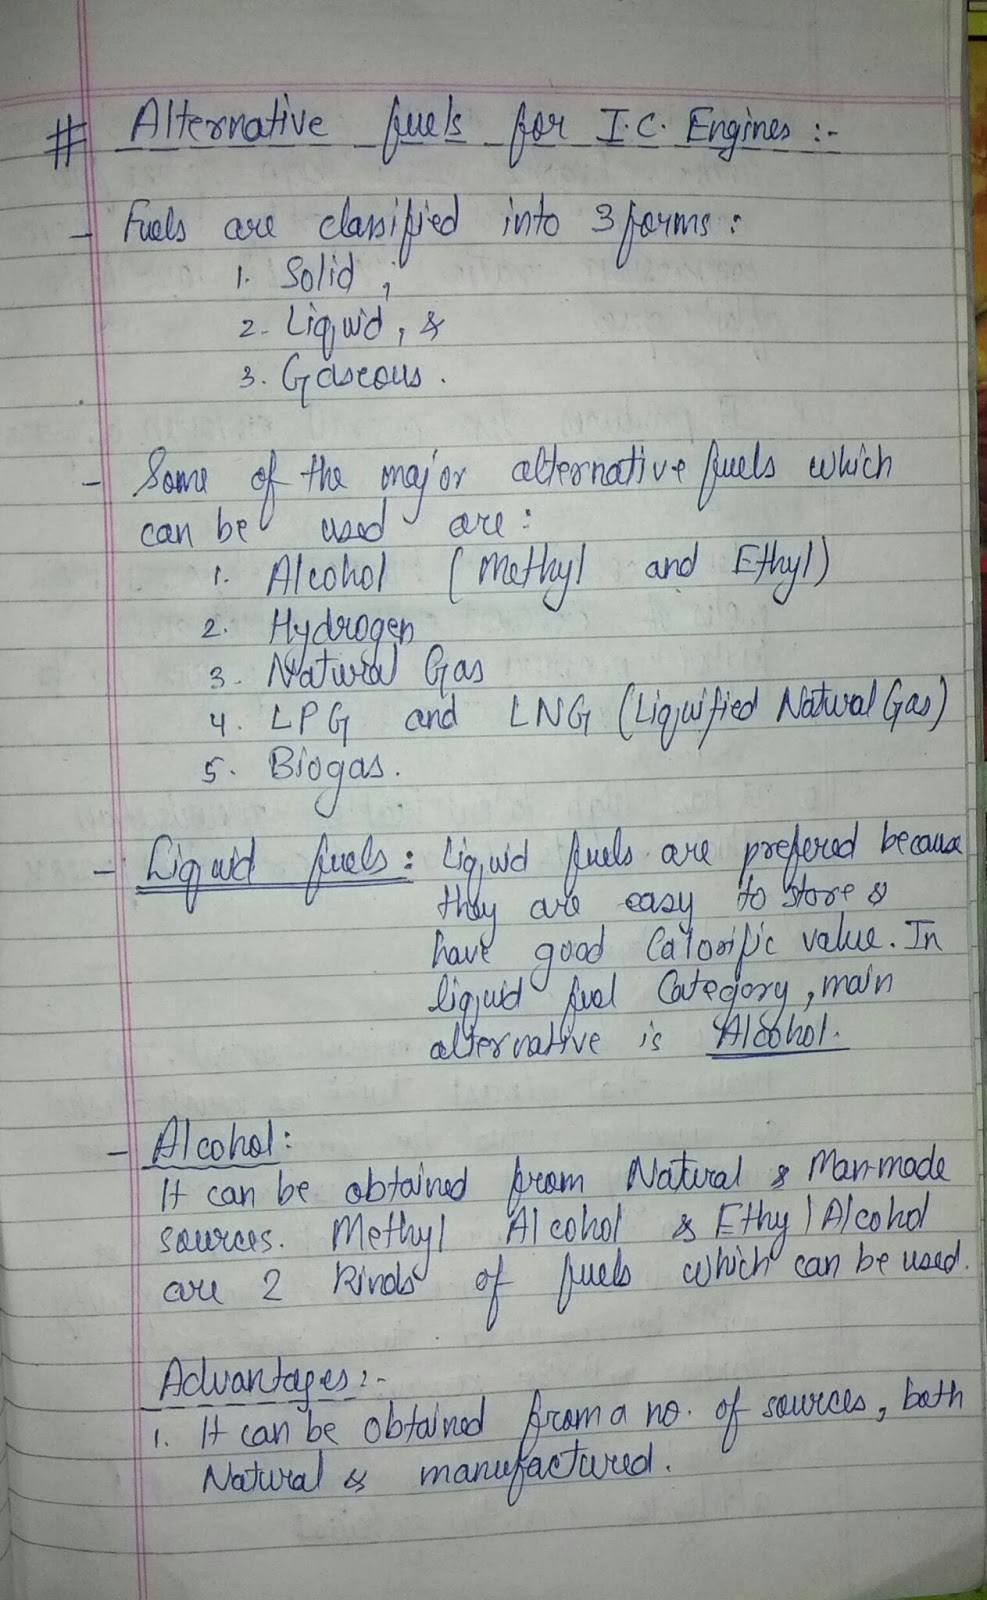 # Alternative fuels for I.C. Engines :-
- Fuels are classified into 3 forms :
1. Solid ,
2. Liquid , &
3. Gaseous .
- Some of the major alternative fuels which
can be used are :
1. Alcohol ( Methyl and Ethyl )
2. Hydrogen
3. Natural Gas
4. LPG and LNG (Liquified Natural Gas)
5. Biogas.
- Liquid fuels : Liquid fuels are prefered because
they are easy to store &
have good Calorific value. In
liquid fuel Category, main
alternative is Alcohol.
- Alcohol :
It can be obtained from Natural & Man-made
sources. Methyl Alcohol & Ethyl Alcohol
are 2 kinds of fuels which can be used.
Advantages :-
1. It can be obtained from a no. of sources, both
Natural & manufactured.